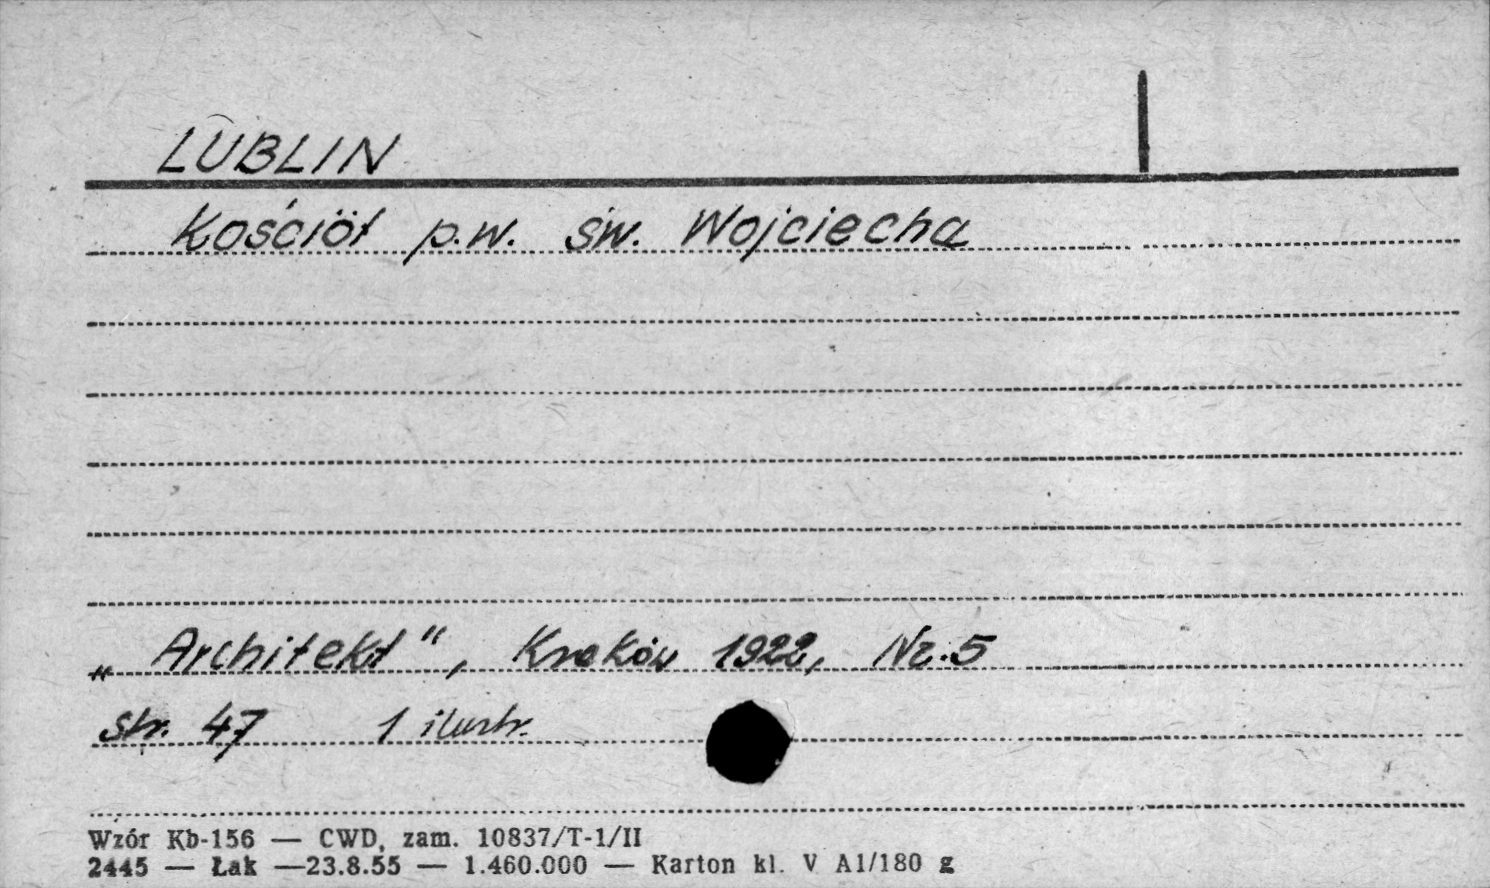 LUBLIN
Kościół p.w. św. Wojciecha
„Architekt", Kraków 1922, Nr. 5
str. 47 1 ilustr.
Wzór Kb-156 — CWD, zam. 10837/T-1/II
2445 — Łak —23.8.55 — 1.460.000 — Karton kl. V A1/180 g